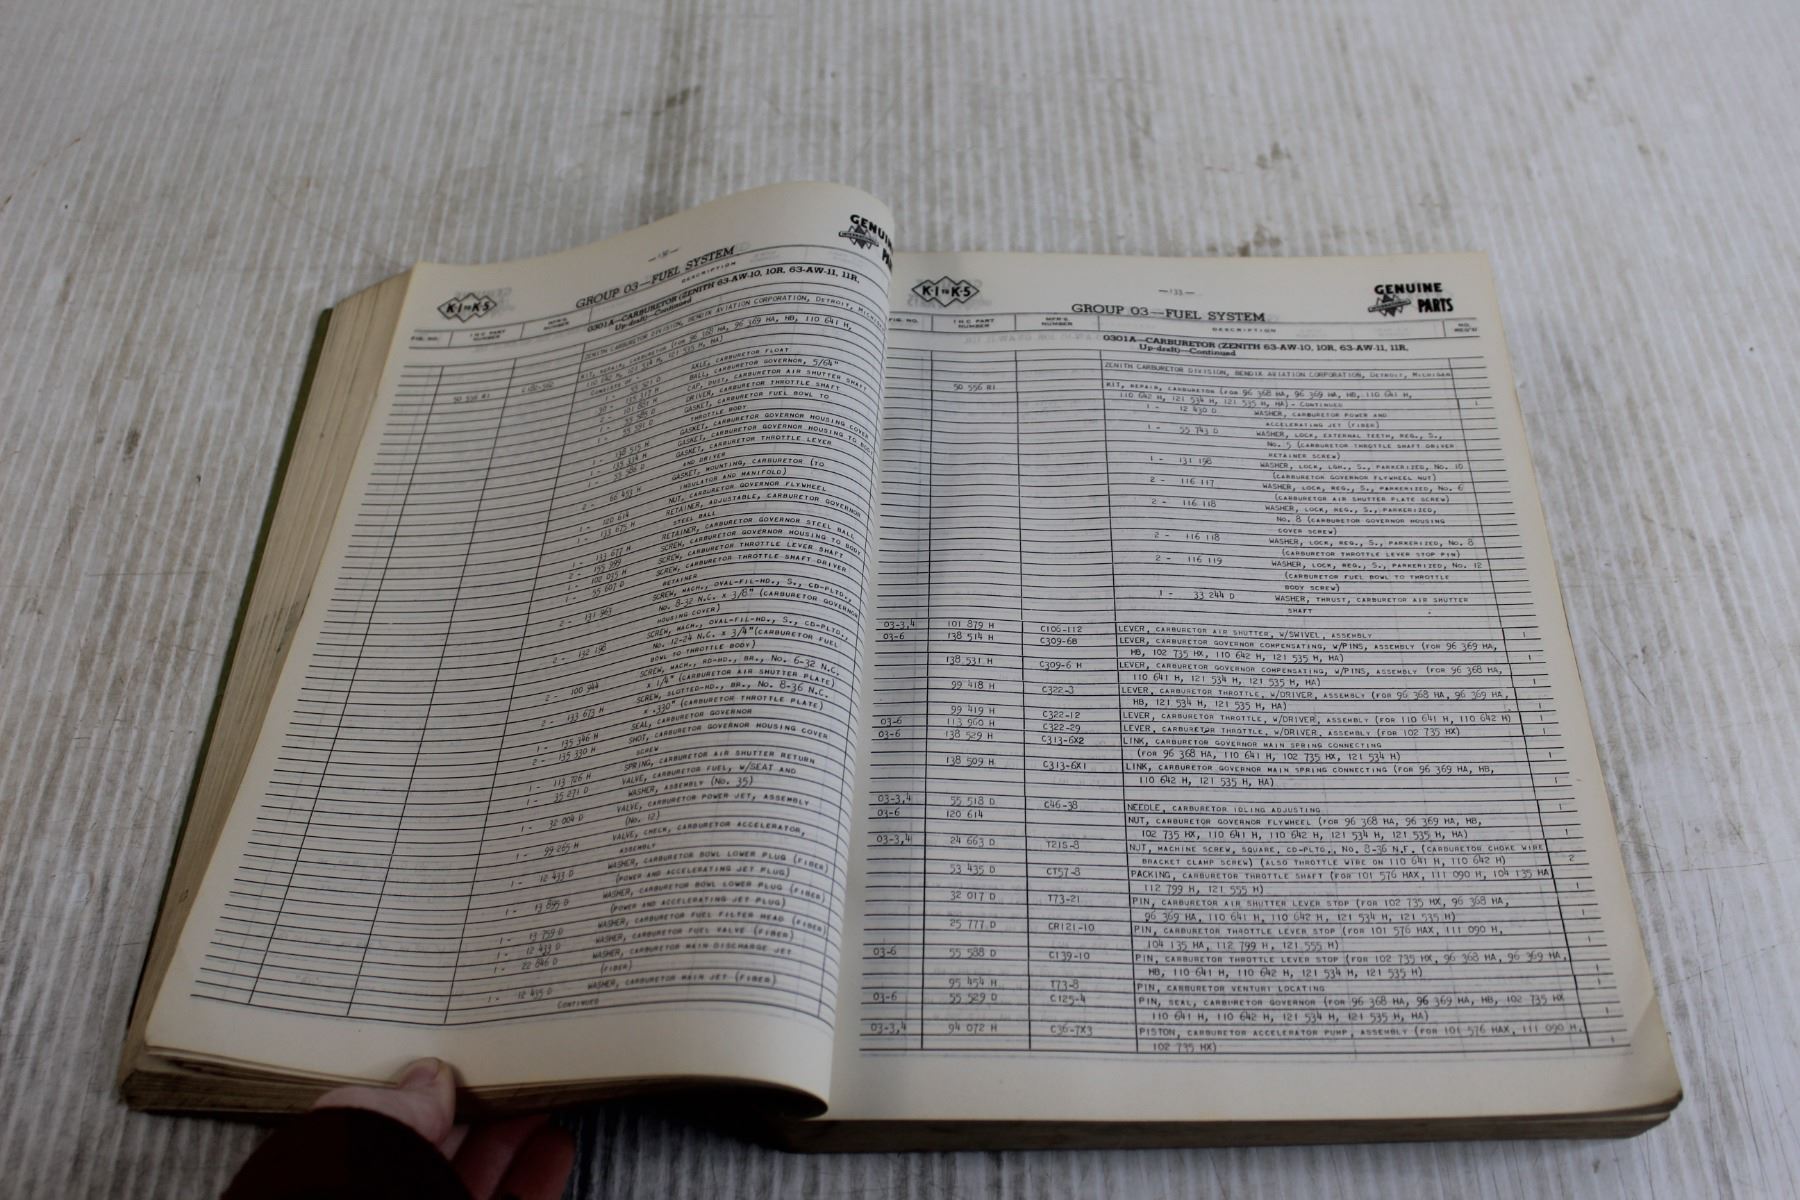 GENUINE
PARTS
K-1 TO K-5
GROUP 03—FUEL SYSTEM
FIG. NO.
I H C PART NUMBER
MFR'S NUMBER
DESCRIPTION
0301A—CARBURETOR (ZENITH 63-AW-10, 10R, 63-AW-11, 11R,
Up-draft)—Continued
ZENITH CARBURETOR DIVISION, BENDIX AVIATION CORPORATION, DETROIT, MICHIGAN
KIT, REPAIR, CARBURETOR (FOR 96 368 HA, 96 369 HA, HB, 110 641 H,
AXLE, CARBURETOR FLOAT
BALL, CARBURETOR GOVERNOR, 5/64"
CAP, DUST, CARBURETOR AIR SHUTTER SHAFT
DRIVER, CARBURETOR THROTTLE SHAFT
GASKET, CARBURETOR FUEL BOWL TO
THROTTLE BODY
GASKET, CARBURETOR GOVERNOR HOUSING COVER
GASKET, CARBURETOR GOVERNOR HOUSING TO BODY
GASKET, CARBURETOR THROTTLE LEVER
AND DRIVER
GASKET, MOUNTING, CARBURETOR (TO
INSULATOR AND MANIFOLD)
1 - 120 614 NUT, CARBURETOR GOVERNOR FLYWHEEL
1 - 133 675 H RETAINER, ADJUSTABLE, CARBURETOR GOVERNOR
STEEL BALL
1 - 133 677 H RETAINER, CARBURETOR GOVERNOR STEEL BALL
SCREW, CARBURETOR GOVERNOR HOUSING TO BODY
SCREW, CARBURETOR THROTTLE LEVER SHAFT
1 - 55 607 D SCREW, CARBURETOR THROTTLE SHAFT DRIVER
RETAINER
2 - 131 963 SCREW, MACH., OVAL-FIL-HD., S., CD-PLTD.,
No. 8-32 N.C. x 3/8" (CARBURETOR GOVERNOR
HOUSING COVER)
2 - 132 198 SCREW, MACH., OVAL-FIL-HD., S., CD-PLTD.,
No. 12-24 N.C. x 3/4" (CARBURETOR FUEL
BOWL TO THROTTLE BODY)
2 - 100 944 SCREW, MACH., RD-HD., BR., No. 6-32 N.C.
x 1/4" (CARBURETOR AIR SHUTTER PLATE)
2 - 133 673 H SCREW, SLOTTED-HD., BR., No. 8-36 N.C.
x .330" (CARBURETOR THROTTLE PLATE)
1 - 135 346 H SEAL, CARBURETOR GOVERNOR
2 - 135 330 H SHOT, CARBURETOR GOVERNOR HOUSING COVER
SCREW
1 - 113 726 H SPRING, CARBURETOR AIR SHUTTER RETURN
1 - 35 271 D VALVE, CARBURETOR FUEL, W/SEAT AND
WASHER, ASSEMBLY (No. 35)
1 - 32 004 D VALVE, CARBURETOR POWER JET, ASSEMBLY
(No. 12)
1 - 99 265 H VALVE, CHECK, CARBURETOR ACCELERATOR,
ASSEMBLY
1 - 12 433 D WASHER, CARBURETOR BOWL LOWER PLUG (FIBER)
(POWER AND ACCELERATING JET PLUG)
1 - 13 895 D WASHER, CARBURETOR BOWL LOWER PLUG (FIBER)
(POWER AND ACCELERATING JET PLUG)
1 - 13 759 D WASHER, CARBURETOR FUEL FILTER HEAD (FIBER)
1 - 12 433 D WASHER, CARBURETOR FUEL VALVE (FIBER)
1 - 22 846 D WASHER, CARBURETOR MAIN DISCHARGE JET
(FIBER)
1 - 12 435 D WASHER, CARBURETOR MAIN JET (FIBER)
CONTINUED
K-1 TO K-5
—133—
GENUINE
PARTS
GROUP 03—FUEL SYSTEM
FIG. NO.
I H C PART NUMBER
MFR'S NUMBER
DESCRIPTION
NO. REQ'D
0301A—CARBURETOR (ZENITH 63-AW-10, 10R, 63-AW-11, 11R,
Up-draft)—Continued
ZENITH CARBURETOR DIVISION, BENDIX AVIATION CORPORATION, DETROIT, MICHIGAN
50 556 R1 KIT, REPAIR, CARBURETOR (FOR 96 368 HA, 96 369 HA, HB, 110 641 H,
110 642 H, 121 534 H, 121 535 H, HA) - CONTINUED 1
1 - 12 430 D WASHER, CARBURETOR POWER AND
ACCELERATING JET (FIBER)
1 - 55 743 D WASHER, LOCK, EXTERNAL TEETH, REG., S.,
No. 5 (CARBURETOR THROTTLE SHAFT DRIVER
RETAINER SCREW)
1 - 131 198 WASHER, LOCK, LGH., S., PARKERIZED, No. 10
(CARBURETOR GOVERNOR FLYWHEEL NUT)
2 - 116 117 WASHER, LOCK, REG., S., PARKERIZED, No. 6
(CARBURETOR AIR SHUTTER PLATE SCREW)
2 - 116 118 WASHER, LOCK, REG., S., PARKERIZED,
No. 8 (CARBURETOR GOVERNOR HOUSING
COVER SCREW)
2 - 116 118 WASHER, LOCK, REG., S., PARKERIZED, No. 8
(CARBURETOR THROTTLE LEVER STOP PIN)
2 - 116 119 WASHER, LOCK, REG., S., PARKERIZED, No. 12
(CARBURETOR FUEL BOWL TO THROTTLE
BODY SCREW)
1 - 33 244 D WASHER, THRUST, CARBURETOR AIR SHUTTER
SHAFT
03-3,4 101 879 H C106-112 LEVER, CARBURETOR AIR SHUTTER, W/SWIVEL, ASSEMBLY 1
03-6 138 514 H C309-6B LEVER, CARBURETOR GOVERNOR COMPENSATING, W/PINS, ASSEMBLY (FOR 96 369 HA,
HB, 102 735 HX, 110 642 H, 121 535 H, HA) 1
138 531 H C309-6 H LEVER, CARBURETOR GOVERNOR COMPENSATING, W/PINS, ASSEMBLY (FOR 96 368 HA,
110 641 H, 121 534 H, 121 535 H, HA) 1
99 418 H C322-3 LEVER, CARBURETOR THROTTLE, W/DRIVER, ASSEMBLY (FOR 96 368 HA, 96 369 HA,
HB, 121 534 H, 121 535 H, HA) 1
99 419 H C322-12 LEVER, CARBURETOR THROTTLE, W/DRIVER, ASSEMBLY (FOR 110 641 H, 110 642 H) 1
03-6 113 960 H C322-29 LEVER, CARBURETOR THROTTLE, W/DRIVER, ASSEMBLY (FOR 102 735 HX) 1
03-6 138 529 H C313-6X2 LINK, CARBURETOR GOVERNOR MAIN SPRING CONNECTING
(FOR 96 368 HA, 110 641 H, 102 735 HX, 121 534 H) 1
138 509 H C313-6X1 LINK, CARBURETOR GOVERNOR MAIN SPRING CONNECTING (FOR 96 369 HA, HB,
110 642 H, 121 535 H, HA) 1
03-3,4 55 518 D C46-38 NEEDLE, CARBURETOR IDLING ADJUSTING 1
03-6 120 614 NUT, CARBURETOR GOVERNOR FLYWHEEL (FOR 96 368 HA, 96 369 HA, HB,
102 735 HX, 110 641 H, 110 642 H, 121 534 H, 121 535 H, HA) 1
03-3,4 24 663 D T21S-8 NUT, MACHINE SCREW, SQUARE, CD-PLTD., No. 8-36 N.F. (CARBURETOR CHOKE WIRE
BRACKET CLAMP SCREW) (ALSO THROTTLE WIRE ON 110 641 H, 110 642 H) 2
53 435 D CT57-8 PACKING, CARBURETOR THROTTLE SHAFT (FOR 101 576 HAX, 111 090 H, 104 135 HA
112 799 H, 121 555 H) 1
32 017 D T73-21 PIN, CARBURETOR AIR SHUTTER LEVER STOP (FOR 102 735 HX, 96 368 HA,
96 369 HA, 110 641 H, 110 642 H, 121 534 H, 121 535 H) 1
25 777 D CR121-10 PIN, CARBURETOR THROTTLE LEVER STOP (FOR 101 576 HAX, 111 090 H,
104 135 HA, 112 799 H, 121 555 H) 1
03-6 55 588 D C139-10 PIN, CARBURETOR THROTTLE LEVER STOP (FOR 102 735 HX, 96 368 HA, 96 369 HA,
HB, 110 641 H, 110 642 H, 121 534 H, 121 535 H) 1
95 454 H T73-8 PIN, CARBURETOR VENTURI LOCATING 1
03-6 55 529 D C125-4 PIN, SEAL, CARBURETOR GOVERNOR (FOR 96 368 HA, 96 369 HA, HB, 102 735 HX
110 641 H, 110 642 H, 121 534 H, 121 535 H, HA) 1
03-3,4 94 072 H C36-7X3 PISTON, CARBURETOR ACCELERATOR PUMP, ASSEMBLY (FOR 101 576 HAX, 111 090 H,
102 735 HX) 1